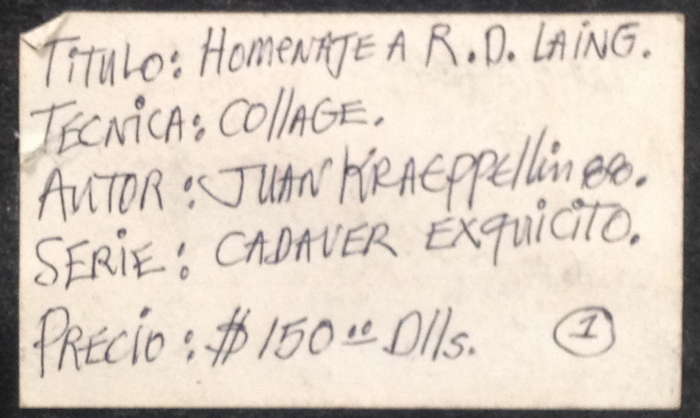 TITULO: HOMENAJE A R.D. LAING.
TECNICA: COllAGE.
AUTOR: JUAN KRAEPPEllin 88.
SERIE: CADAVER EXQUICITO.
PRECIO: $150.00 Dlls. 1